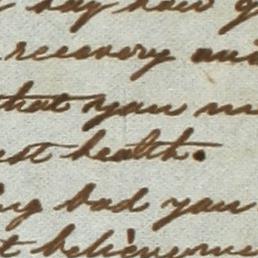 say how
recovery and
that you
health.
bad you
believe me